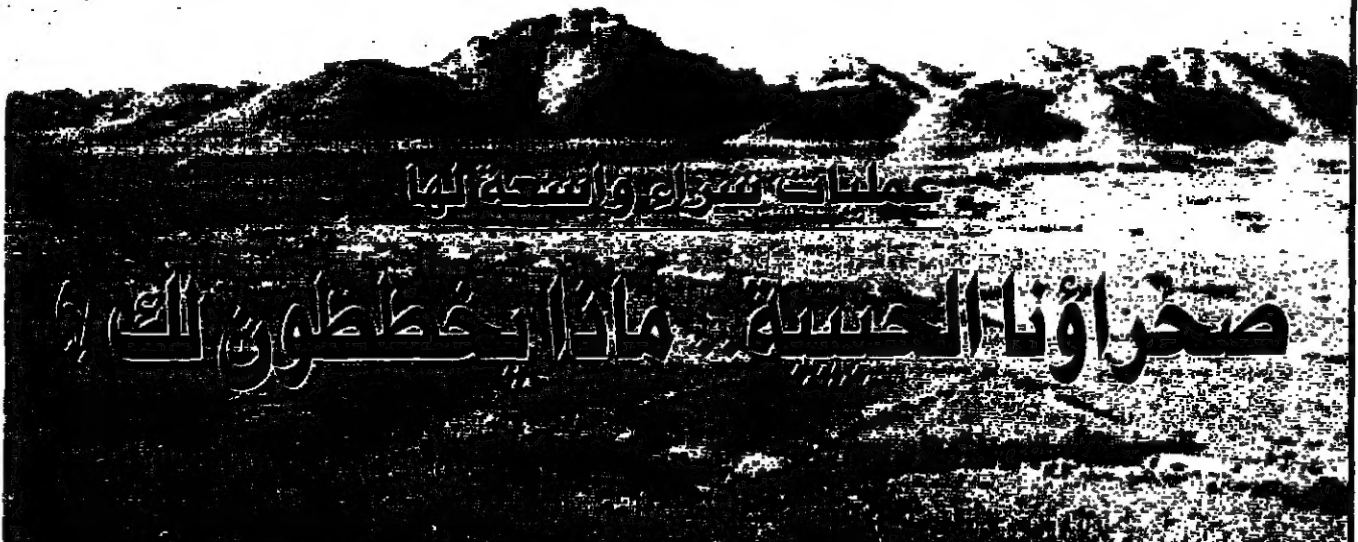 عمليات شراء واسعة لها
صحراؤنا الحبيبة.. ماذا يخططون لك ؟!